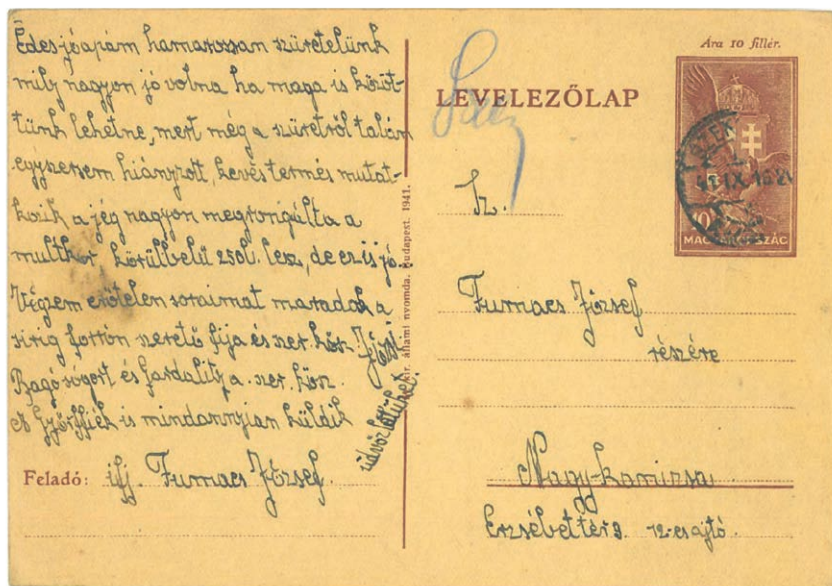 Édesjóapám hamarossan szüretelünk
mily nagyon jó volna ha maga is közöt-
tünk lehetne, mert még a szüretről talán
egyszersem hiányzott, kevés termés mutat-
kozik a jég nagyon megrongálta a
multkor körülbelül 250l. lesz, de ez is jó.
Végzem erőtelen soraimat maradok a
sirig forrón szerető fija és szer. köz. Józsi
Bagó sógort és szer. köz.
A Györffiék is mindannyian küldik
üdvözletüket.
Feladó: ifj. Furnacs József
kir. állami nyomda. Budapest. 1941.
LEVELEZŐLAP
Ára 10 fillér.
10
MAGYARORSZÁG
Sz.
Furnacs József
részére
Nagy-kanizsa
Erzsébettér 9. 12-es ajtó.